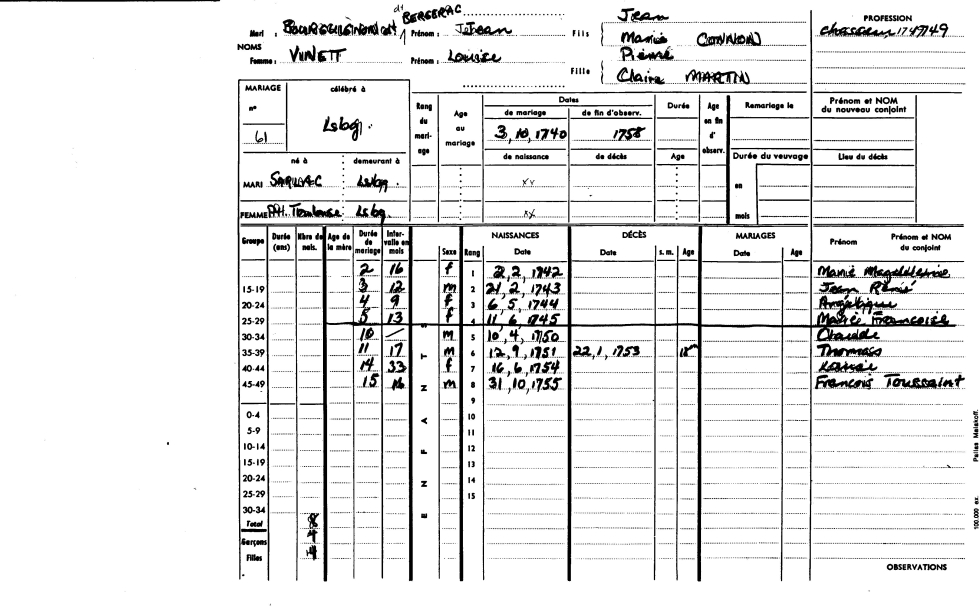 dt BERGERAC
Jean
PROFESSION
Mari : BOURGUIGNON dt, Prénom : Jean Fils { Marie CONNON
chasseur 1747/49
NOMS
Femme : VINETT Prénom : Louise Fille { Pierre
Claire MARTIN
MARIAGE célébré à
n° 61 Lsbg.
Rang du mariage Age au mariage Dates Durée Age en fin d'observ. Remariage le Prénom et NOM du nouveau conjoint
de mariage de fin d'observ.
3, 10, 1740 1758
de naissance de décès Age Durée du veuvage Lieu du décès
né à demeurant à
MARI SARLAC Lsbg. xv en
FEMME Toulouse Lsbg. xv mois
Groupe Durée (ans) Nbre de nais. Age de la mère Durée de mariage Intervalle en mois ENFANTS Sexe Rang NAISSANCES Date DÉCÈS Date s. m. Age MARIAGES Date Age Prénom Prénom et NOM du conjoint
2 16 f 1 2, 2, 1742 Marie Magdeleine
15-19 3 12 m 2 21, 2, 1743 Jean René
20-24 4 9 f 3 6, 5, 1744 Angélique
25-29 5 13 f 4 11, 6, 1745 Marie Francoise
30-34 10 — m 5 10, 4, 1750 Claude
35-39 11 17 m 6 12, 9, 1751 22, 1, 1753 18m Thomas
40-44 14 33 f 7 16, 6, 1754 Louise
45-49 15 16 m 8 31, 10, 1755 Francois Toussaint
9
0-4 10
5-9 11
10-14 12
15-19 13
20-24 14
25-29 15
30-34
Total 8
Garçons 4
Filles 4
OBSERVATIONS
100.000 ex. Pallas Malakoff.